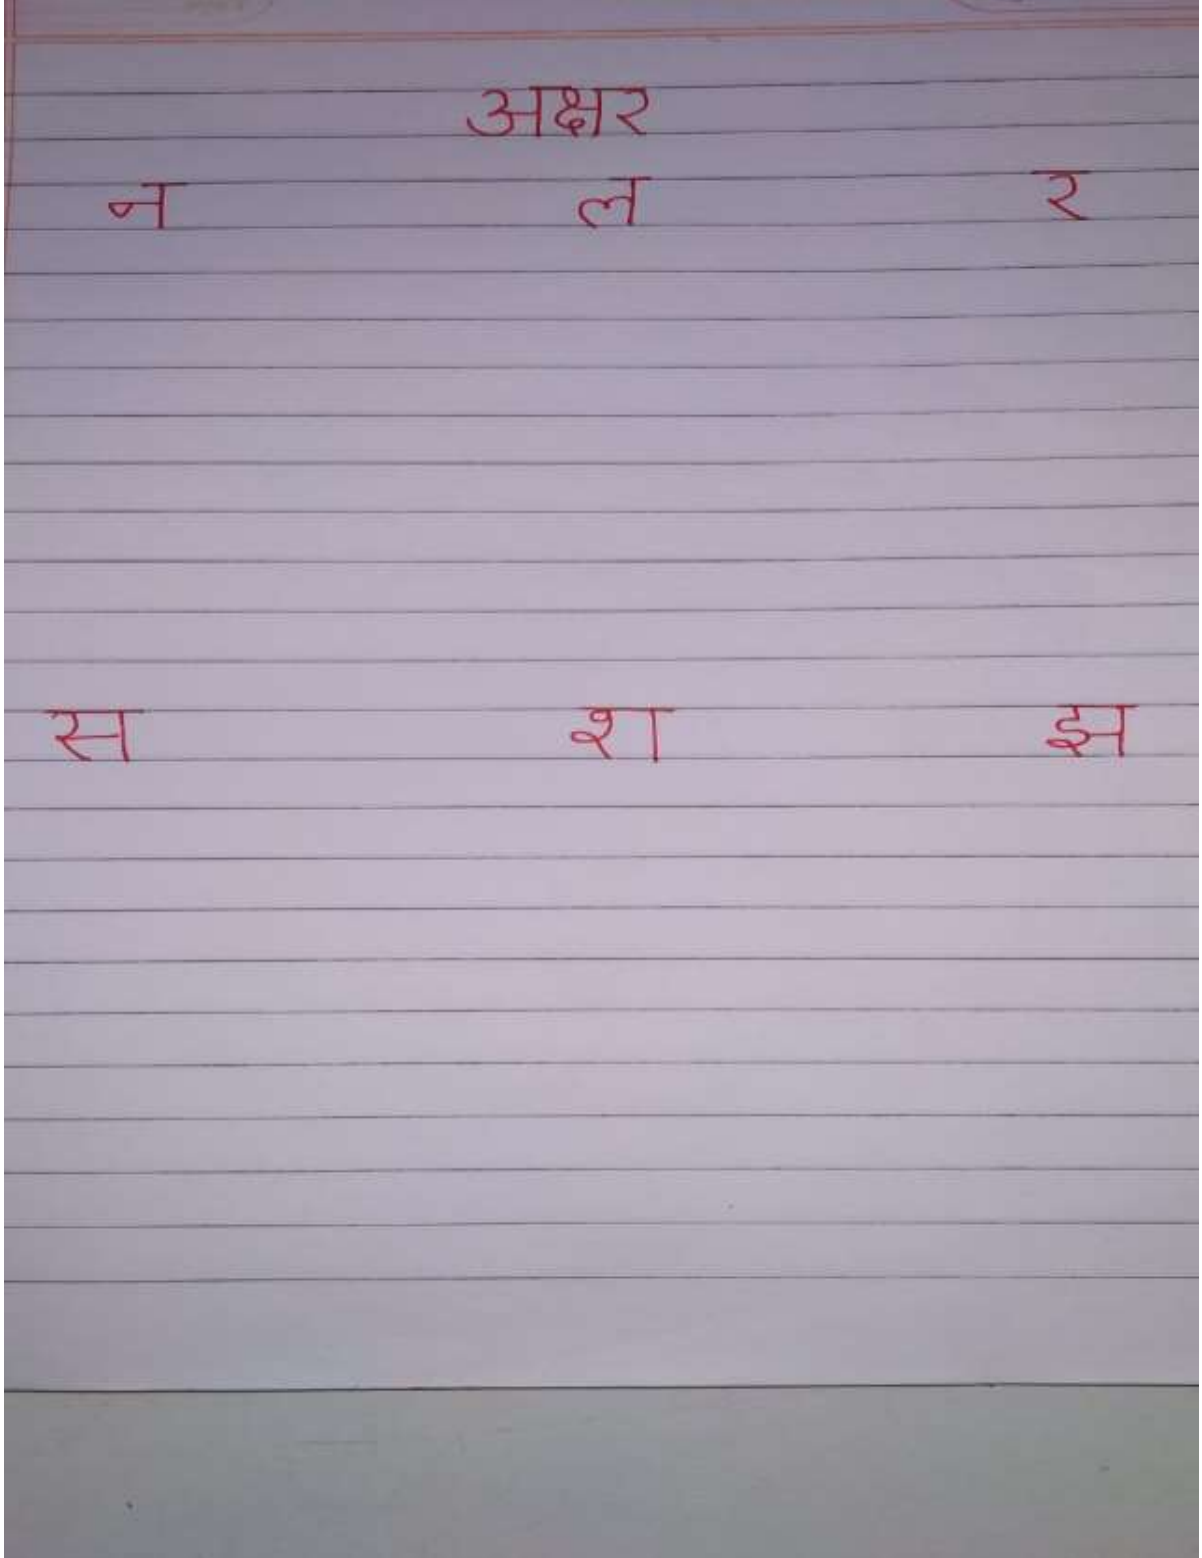 अक्षर
न ल र
स श झ